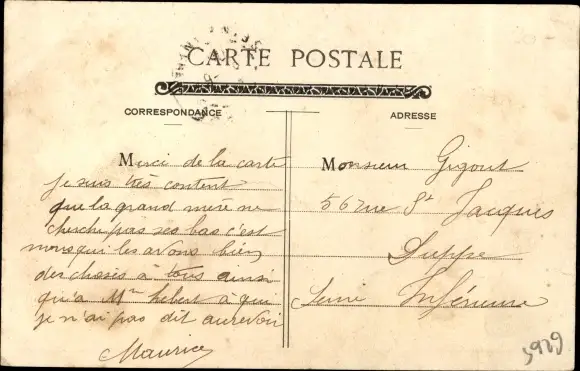 CARTE POSTALE
CORRESPONDANCE
ADRESSE
Merci de la carte
je suis très content
que la grand mère ne
cherche pas ses bas c'est
nous qui les avons bien
des choses à tous ainsi
qu'à Mme hebert à qui
je n'ai pas dit aurevoir
Maurice
Monsieur Gigout
56 rue St Jacques
Dieppe
Seine Inférieure
5929